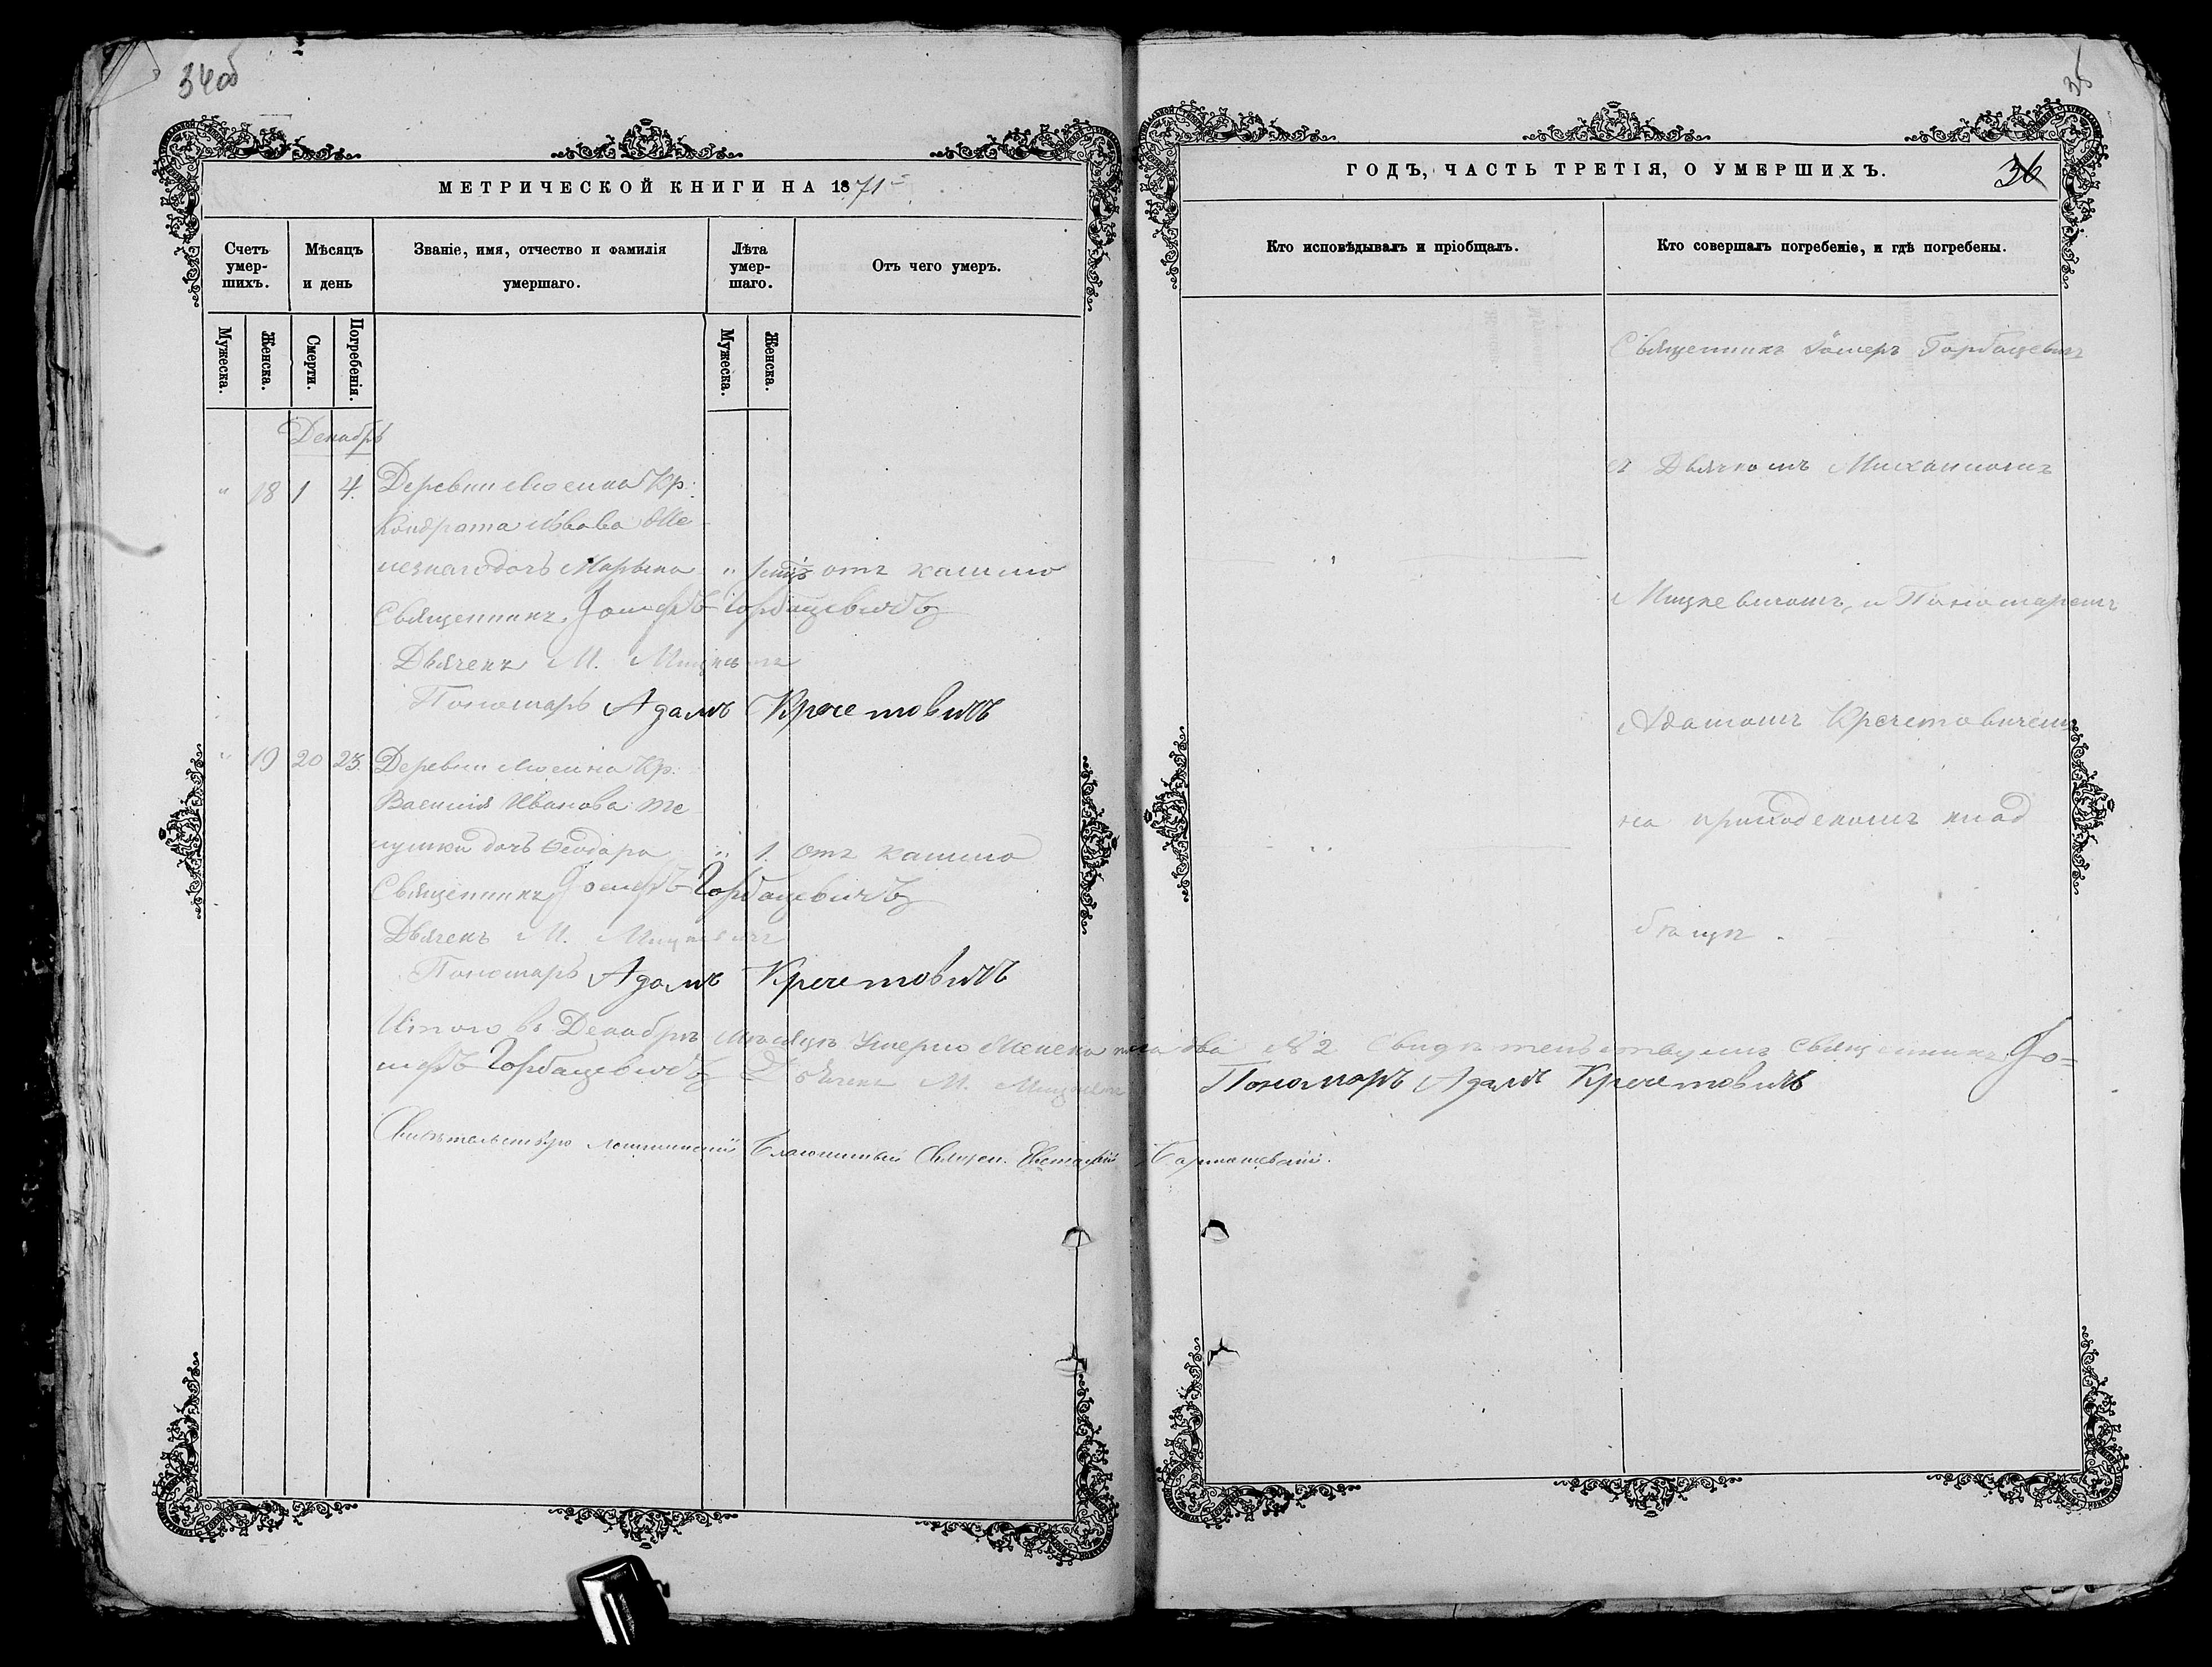 34об
МЕТРИЧЕСКОЙ КНИГИ НА 1871
Счетъ умер-шихъ.
Мѣсяцъ и день
Званіе, имя, отчество и фамилія умершаго.
Лѣта умер-шаго.
Отъ чего умеръ.
Мужеска.
Женска.
Смерти.
Погребенія.
Мужеска.
Женска.
Декабрь
" 18 1 4. Деревни Кр.
Кондрата
дочь Марьяна " отъ кашлю
Священникъ Іосифъ Горбацевичъ
Дьячекъ М. Мицкевичъ
Пономарь Адамъ Кречетовичъ
" 19 20 23. Деревни Кр.
Василія Иванова
дочь Ѳеодора " 1. отъ кашлю
Священникъ Іосифъ Горбацевичъ
Дьячекъ М. Мицкевичъ
Пономарь Адамъ Кречетовичъ
Итого въ Декабрѣ мѣсяцѣ Умерло Женска пола два № 2 Свидѣтельствуемъ Священникъ Іо=
сифъ Горбацевичъ Дьячекъ М. Мицкевичъ Пономарь Адамъ Кречетовичъ
Благочинный Священ.
35
ГОДЪ, ЧАСТЬ ТРЕТІЯ, О УМЕРШИХЪ.
36
Кто исповѣдывалъ и пріобщалъ.
Кто совершалъ погребеніе, и гдѣ погребены.
Священникъ Іосифъ Горбацевичъ
съ Дьячкомъ Михаиломъ
Мицкевичомъ, и Пономаремъ
Адамомъ Кречетовичемъ
на приходскомъ клад
бищѣ.